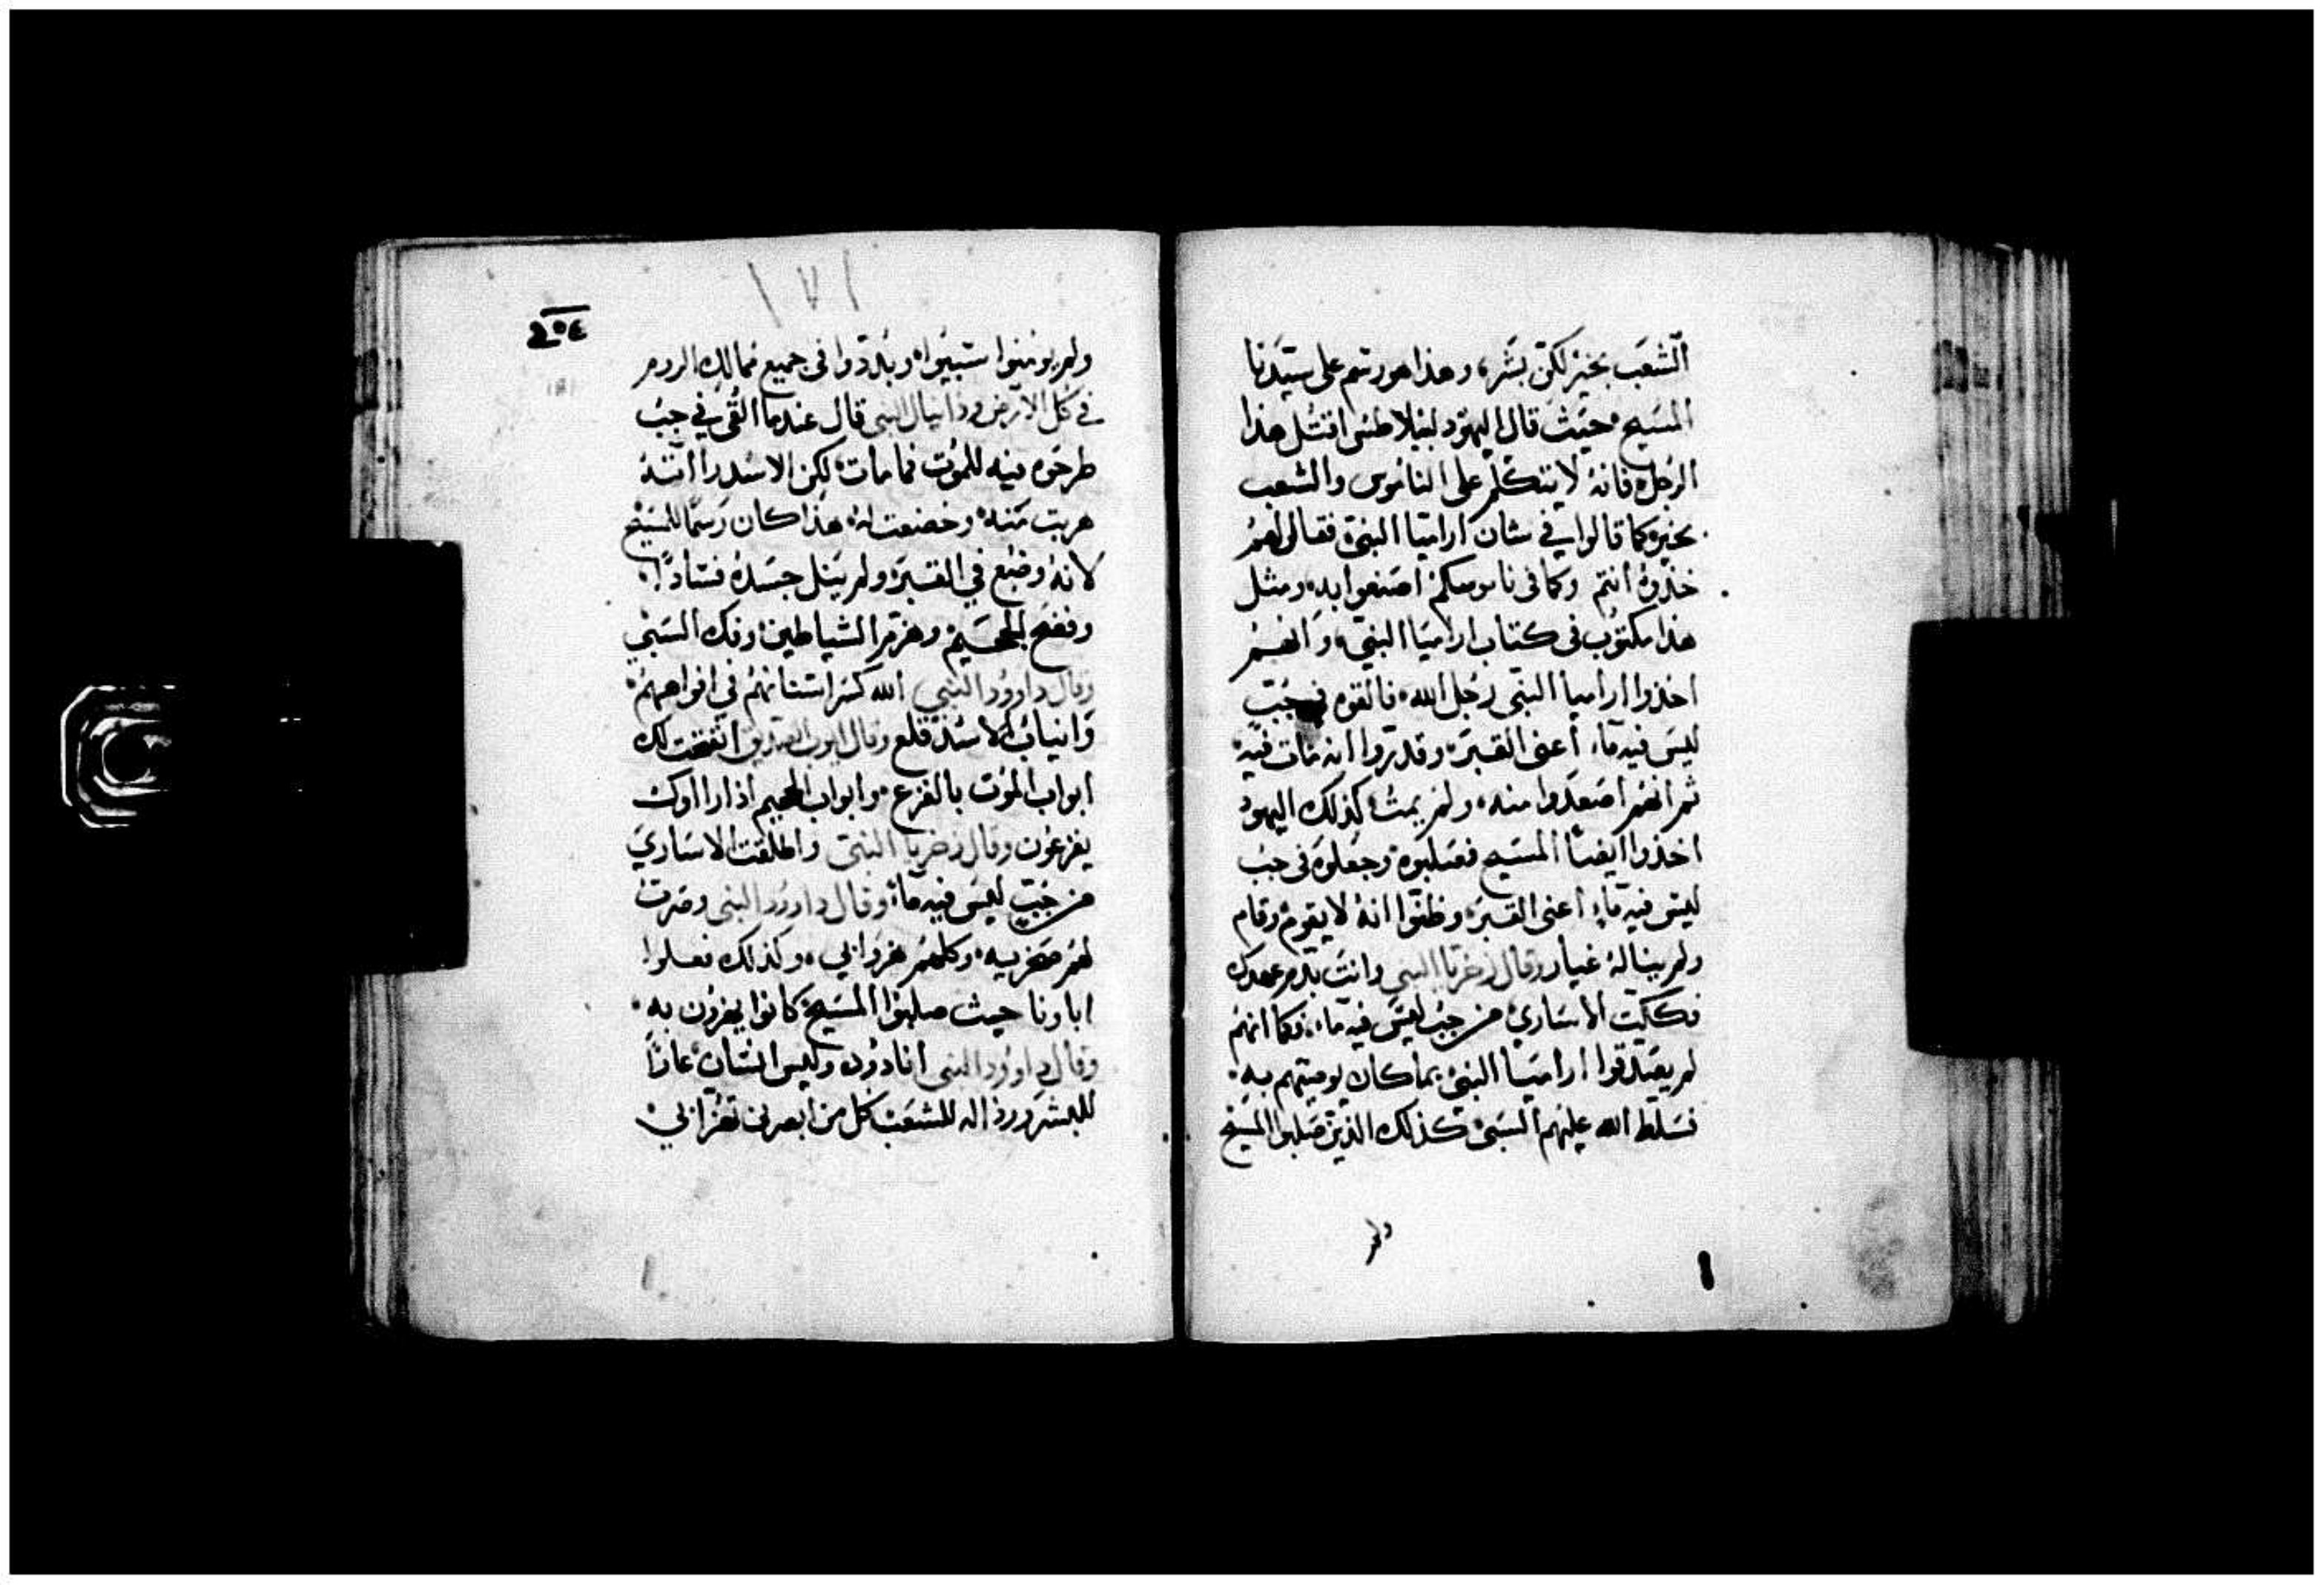 الشعب بخير لكن بشر، وهذا هو رسم على سيدنا
المسيح حيث قال اليهود لبيلاطس اقتل هذا
الرجل فانه لا يتكلم على الناموس والشعب
بخير كما قالوا في شان اراميا النبي فقال لهم
خذوه انتم وكما في ناموسكم اصنعوا به ومثل
هذا مكتوب في كتاب ارامياا النبي وانهم
اخذوا اراميا النبي رجل الله فالقوه في جب
ليس فيه ماء اعني القبر وقدروا انه مات فيه
ثم انهم اصعدوا منه ولم يمت كذلك اليهود
اخذوا ايضا المسيح فصلبوه وجعلوه في جب
ليس فيه ماء اعني القبر وظنوا انه لا يقوم وقام
ولم يناله غيار وقال زخريا النبي وانت بدم عهدك
فككت الاساري من جب ليس فيه ماء فكما انهم
لم يصدقوا اراميا النبي بما كان يوصيهم به
فسلط الله عليهم السبي كذلك الذين صلبوا المسيح
ولم
ولم يومنوا استبيوا وبددوا في جميع ممالك الروم
في كل الارض ودانيال النبي قال عندما القي في جب
طرحوه فيه للموت فما مات لكن الاسد راتته
هربت منه وخضعت له هذا كان رسما للمسيح
لانه وضع في القبر ولم ينل جسده فسادا
وفضح الجحيم وهزم الشياطين وفك السبي
وقال داوود النبي الله كسر اسنانهم في افواههم
وانياب الاسد قلع وقال ايوب الصديق انفتحت لك
ابواب الموت بالفزع وابواب الجحيم اذا راوك
يفزعون وقال زخريا النبي واطلقت الاساري
من جب ليس فيه ماء وقال داوود النبي وصرت
لهم صخريه وكلهم هزوا بي وكذلك فعلوا
اباونا حيث صلبوا المسيح كانوا يهزون به
وقال داوود النبي انا دوده وليس انسان عارا
للبشر ورذاله للشعب كل من ابصرني تهزا بي